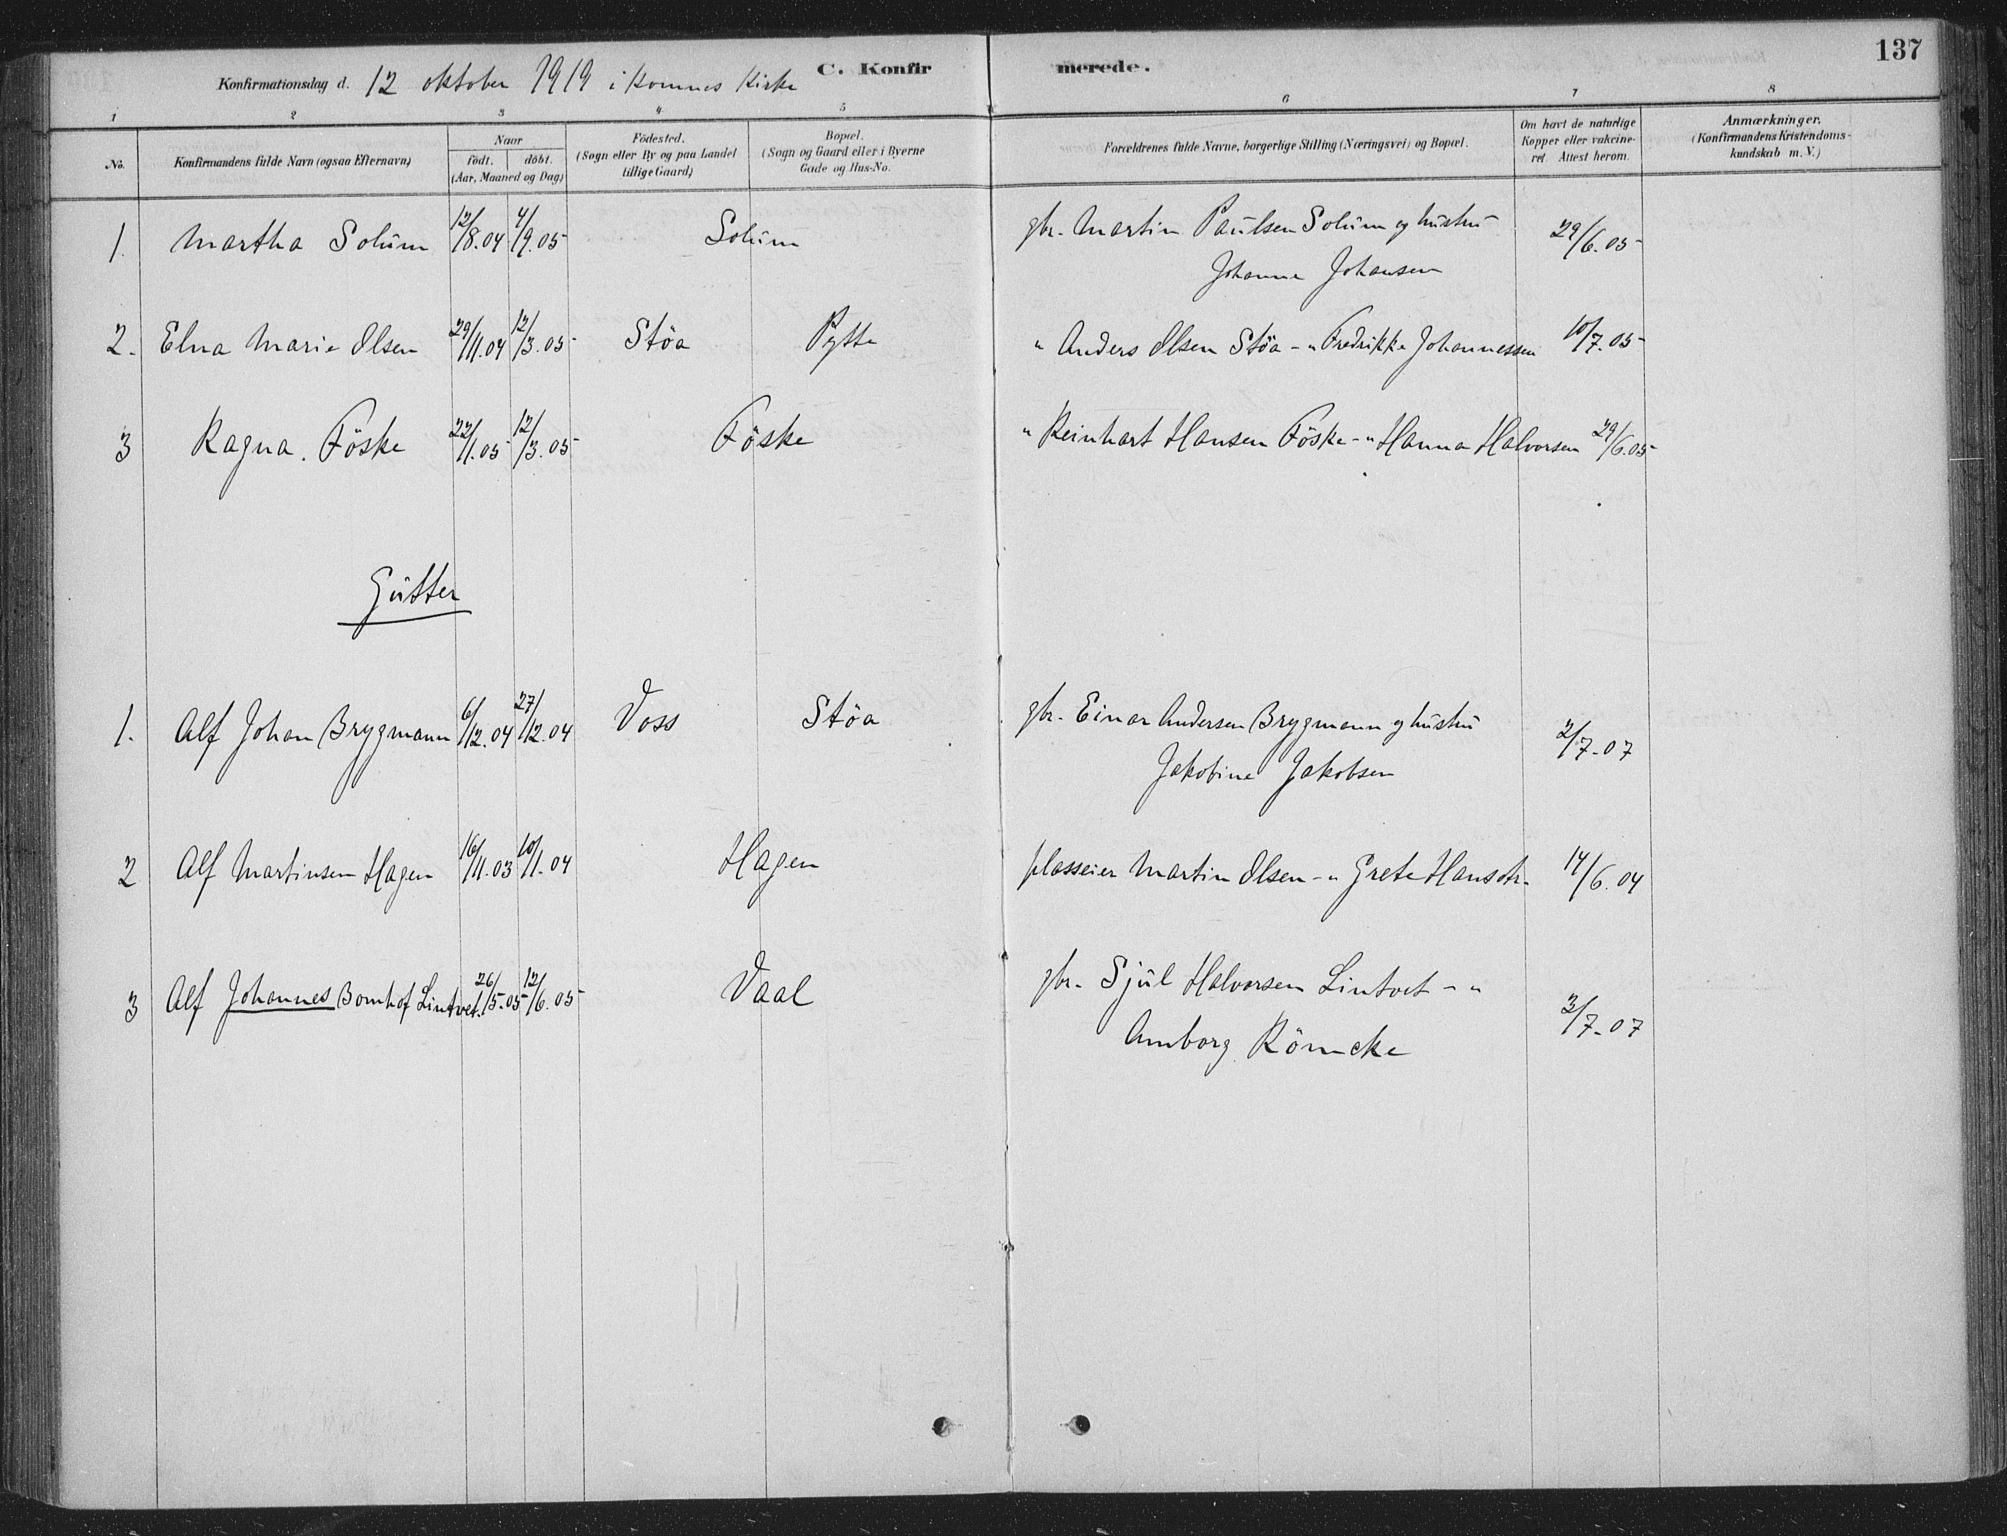 137
Konfirmationsdag d. 12 oktober 1919 i Komnes Kirke C. Konfirmerede.
1 2 3 4 5 6 7 8
No. Konfirmandens fulde Navn (ogsaa Efternavn) Naar födt. döbt. (Aar, Maaned og Dag) Födested. (Sogn eller By og paa Landet tillige Gaard) Bopæl. (Sogn og Gaard eller i Byerne Gade og Hus-No. Forældrenes fulde Navne, borgerlige Stilling (Næringsvei) og Bopæl. Om havt de naturlige Kopper eller vakcineret. Attest herom. Anmærkninger. (Konfirmandens Kristendomskundskab m. V.)
1. Martha Solüm 12/8.04 4/9.05 Solüm gbr. Martin Paülsen Solüm og hüstrü 29/6.05
Johanne Johansen
2. Elna Marie Olsen 29/11.04 12/3.05 Stöa Pytte " Anders Olsen Stöa - " Fredrikke Johannessen 10/7.05
3 Ragna. Föske 22/1.05 12/3.05 Föske " Reinhart Hansen Föske - " Hanna Halvorsen 29/6.05
Gütter
1. Alf Johan Brygmann 6/12.04 27/12.04 Voss Stöa gbr. Einar Andersen Brygmann og hüstrü 2/7-07
Jakobine Jakobsen
2 Alf Martinsen Hagen 16/11.03 10/1.04 Hagen plasseier Martin Olsen - " Grete Hansdtr. 14/6.04
3 Alf Johannes Bomhof Lintvet. 26/5.05 12/6.05 Vaal gbr. Sjül Halvorsen Lintvet - " 3/7-07
Amborg Römcke